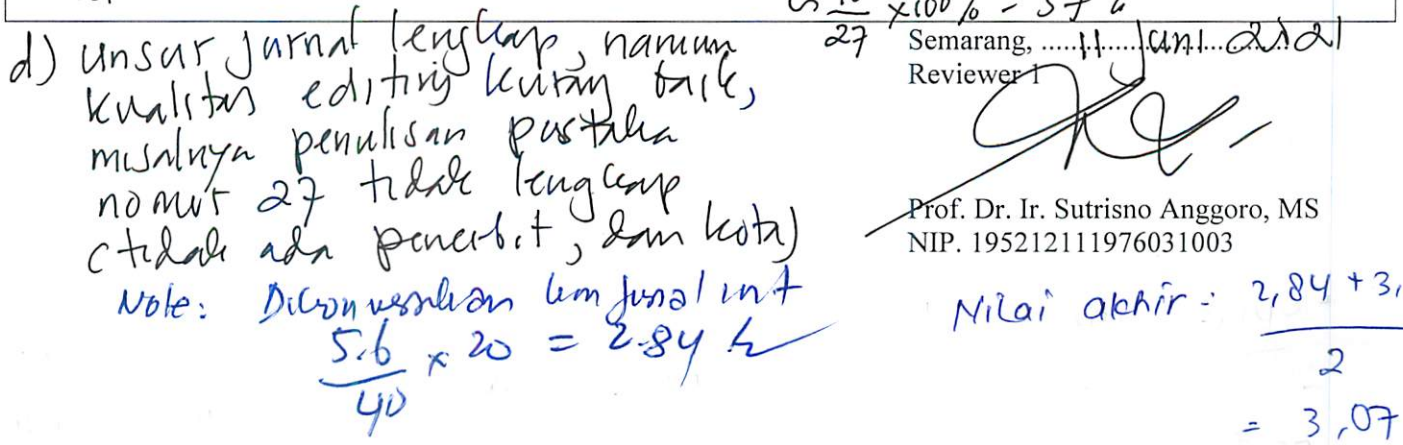 27 x100% = 37 %
d) unsur jurnal lengkap, namun
kualitas editing kurang baik,
misalnya penulisan pustaka
nomor 27 tidak lengkap
(tidak ada penerbit, dan kota)
Note: Dikonversikan ke jurnal int
5.6 x 20 = 2.84
40
Semarang, ..... 11 Juni 2021
Reviewer 1
Prof. Dr. Ir. Sutrisno Anggoro, MS
NIP. 195212111976031003
Nilai akhir = 2,84 + 3,
2
= 3,07